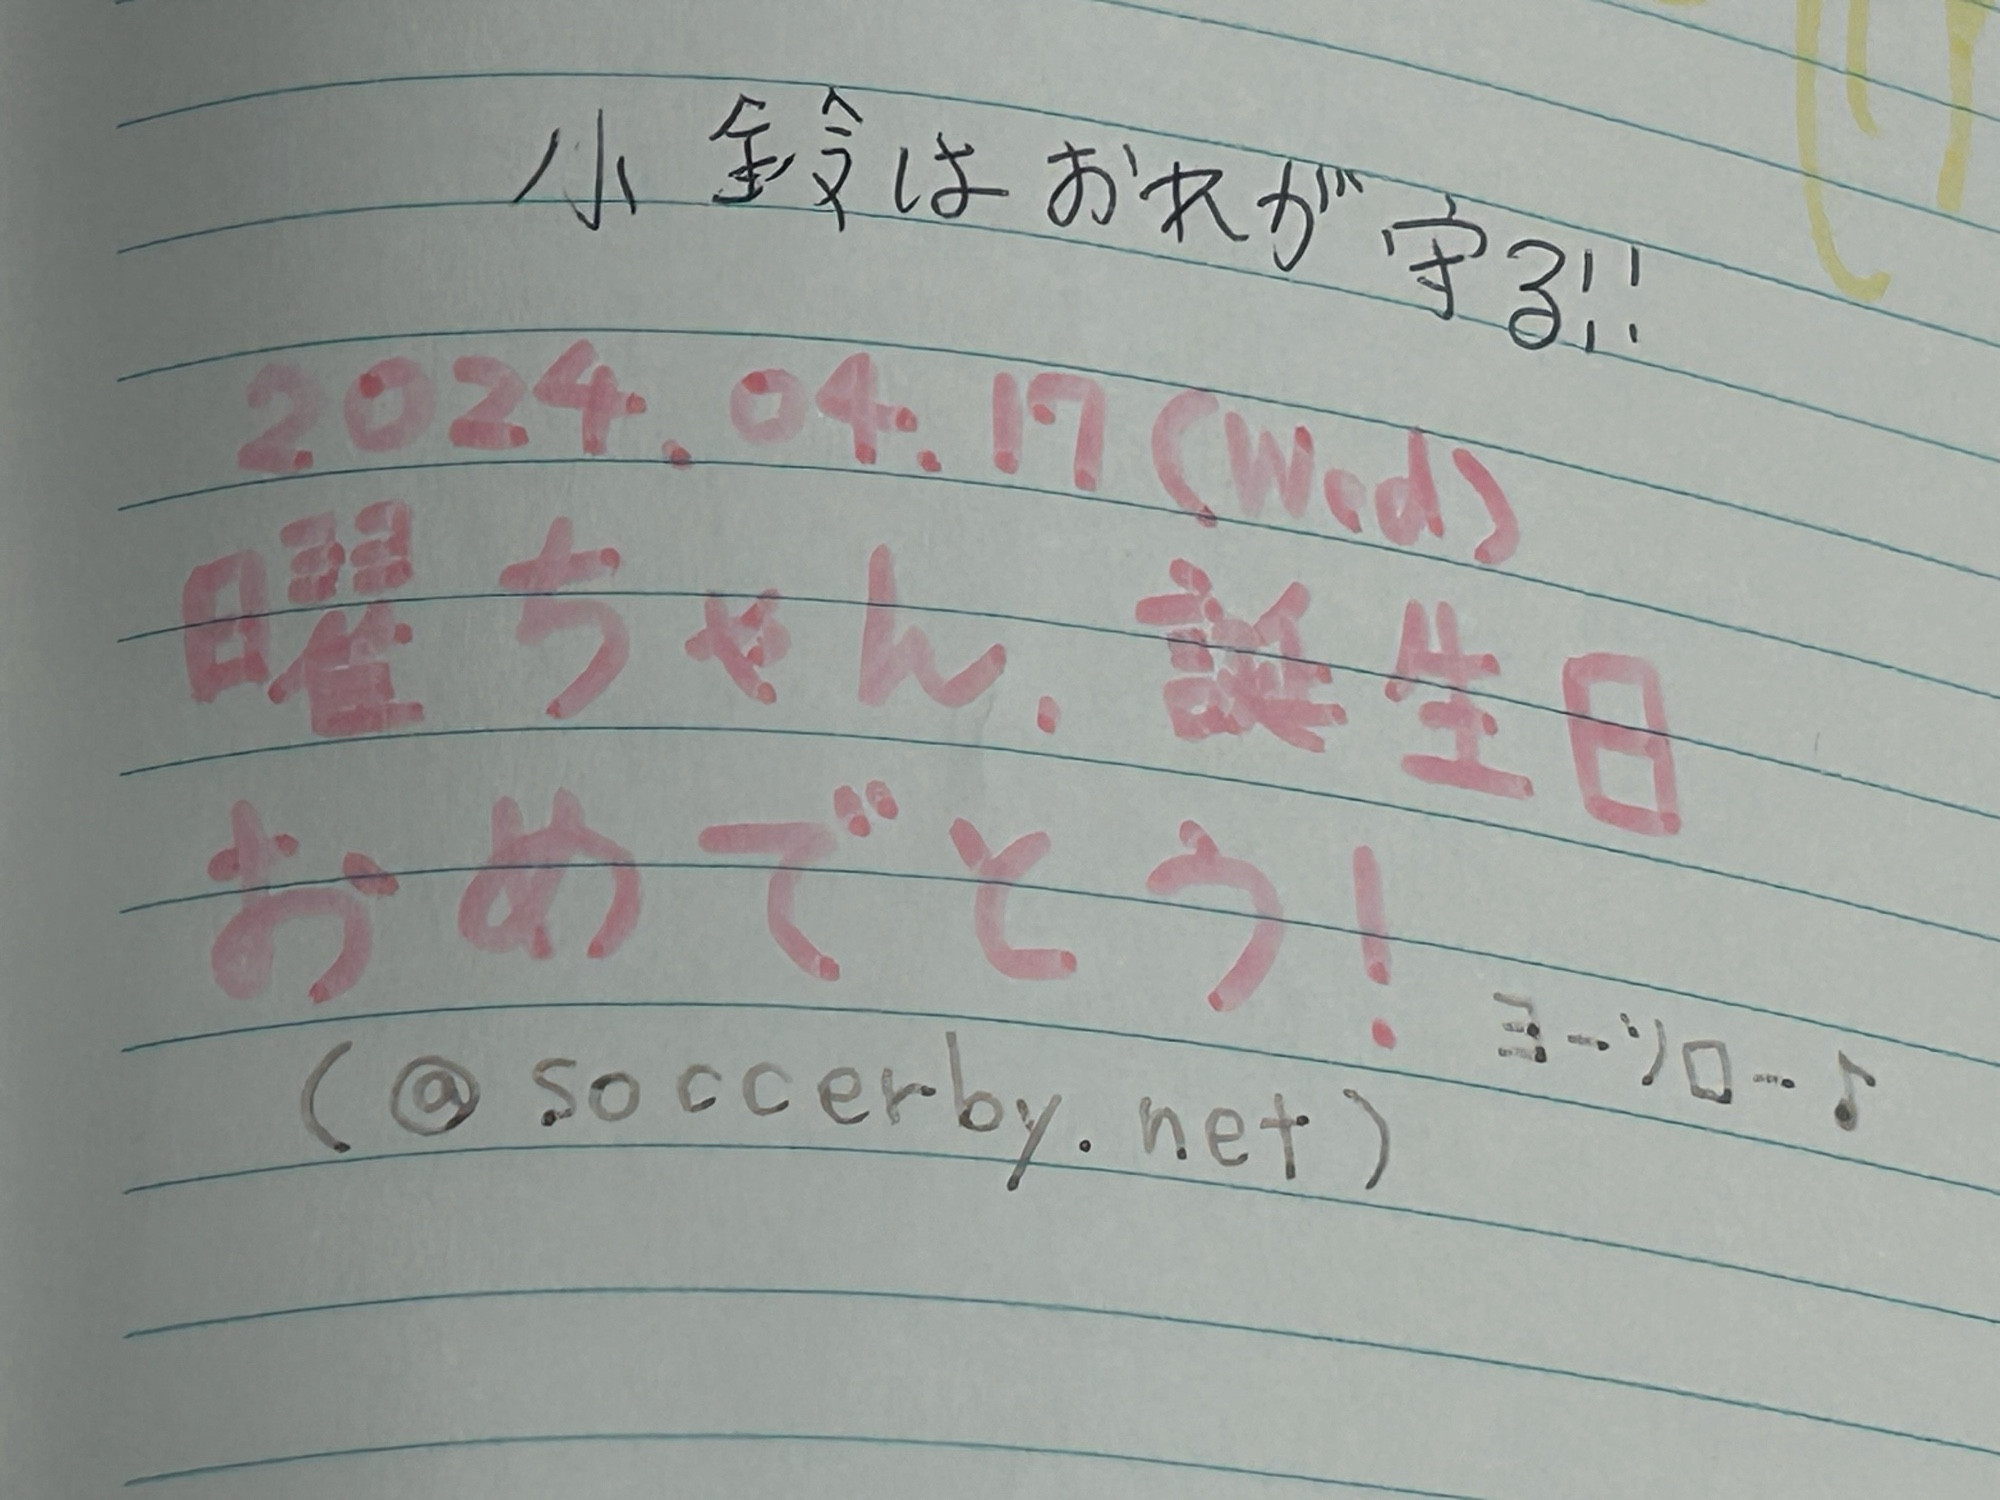 小鈴はおれが守る!!
2024.04.17(Wed)
曜ちゃん、誕生日
おめでとう!
ヨーソロー♪
(@soccerby.net)